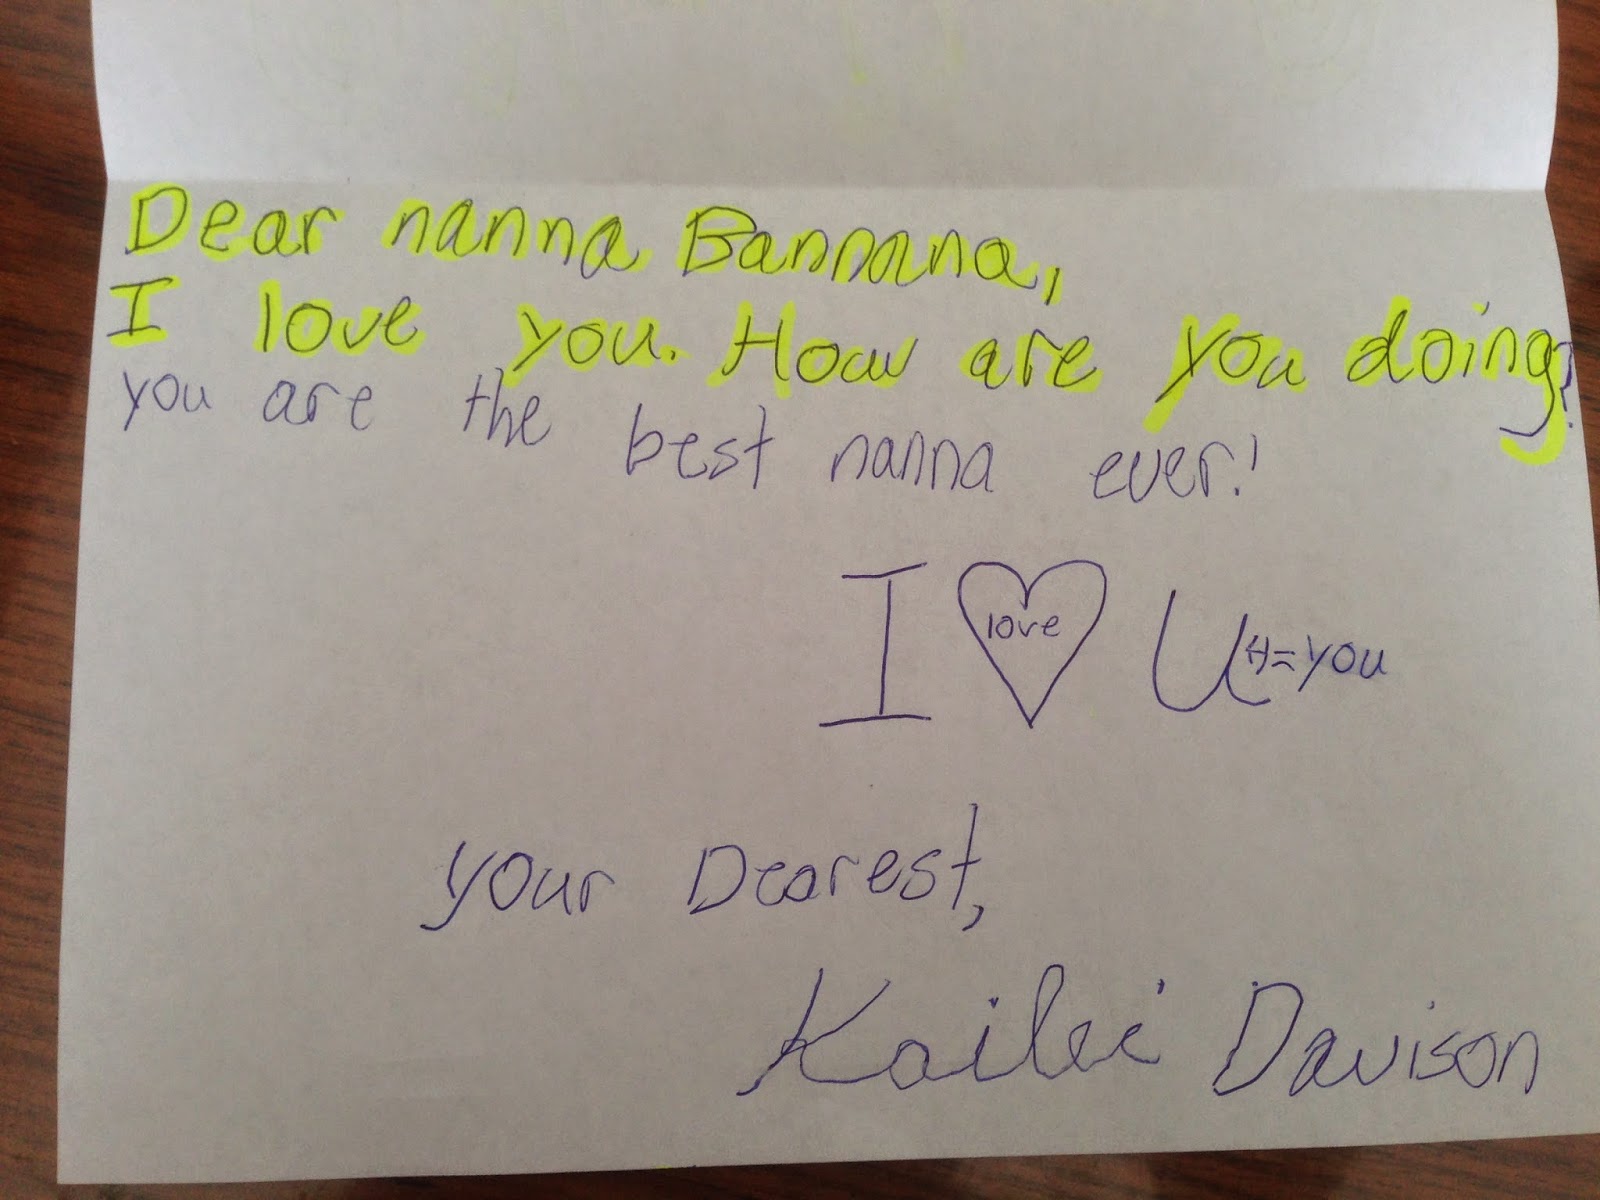 Dear nanna Bannana,
I love you. How are you doing?
you are the best nanna ever!
I love U = you
your Dearest,
Kailei Davison